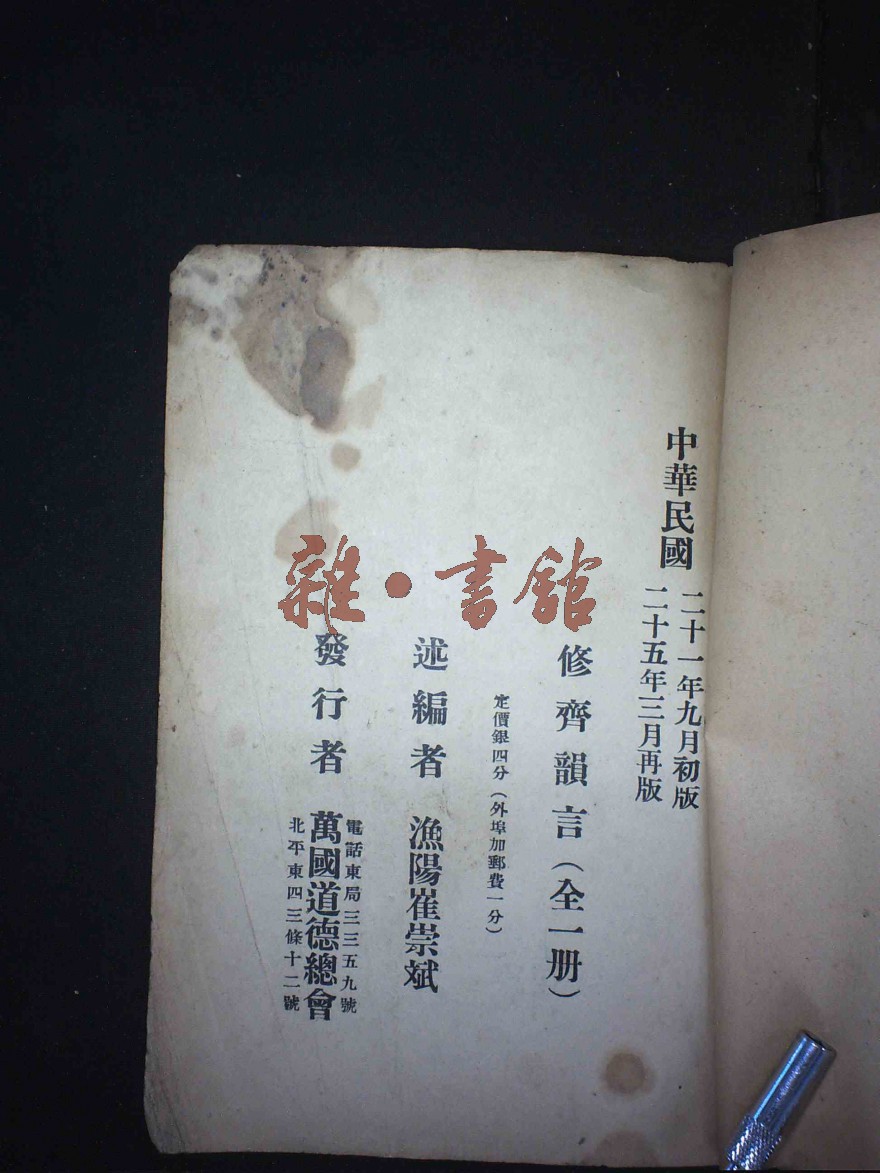 中華民國
二十一年九月初版
二十五年三月再版
修齊韻言（全一册）
定價銀四分（外埠加郵費一分）
述編者 漁陽崔崇斌
發行者 萬國道德總會
電話東局三三五九號
北平東四三條十二號
雜·書館